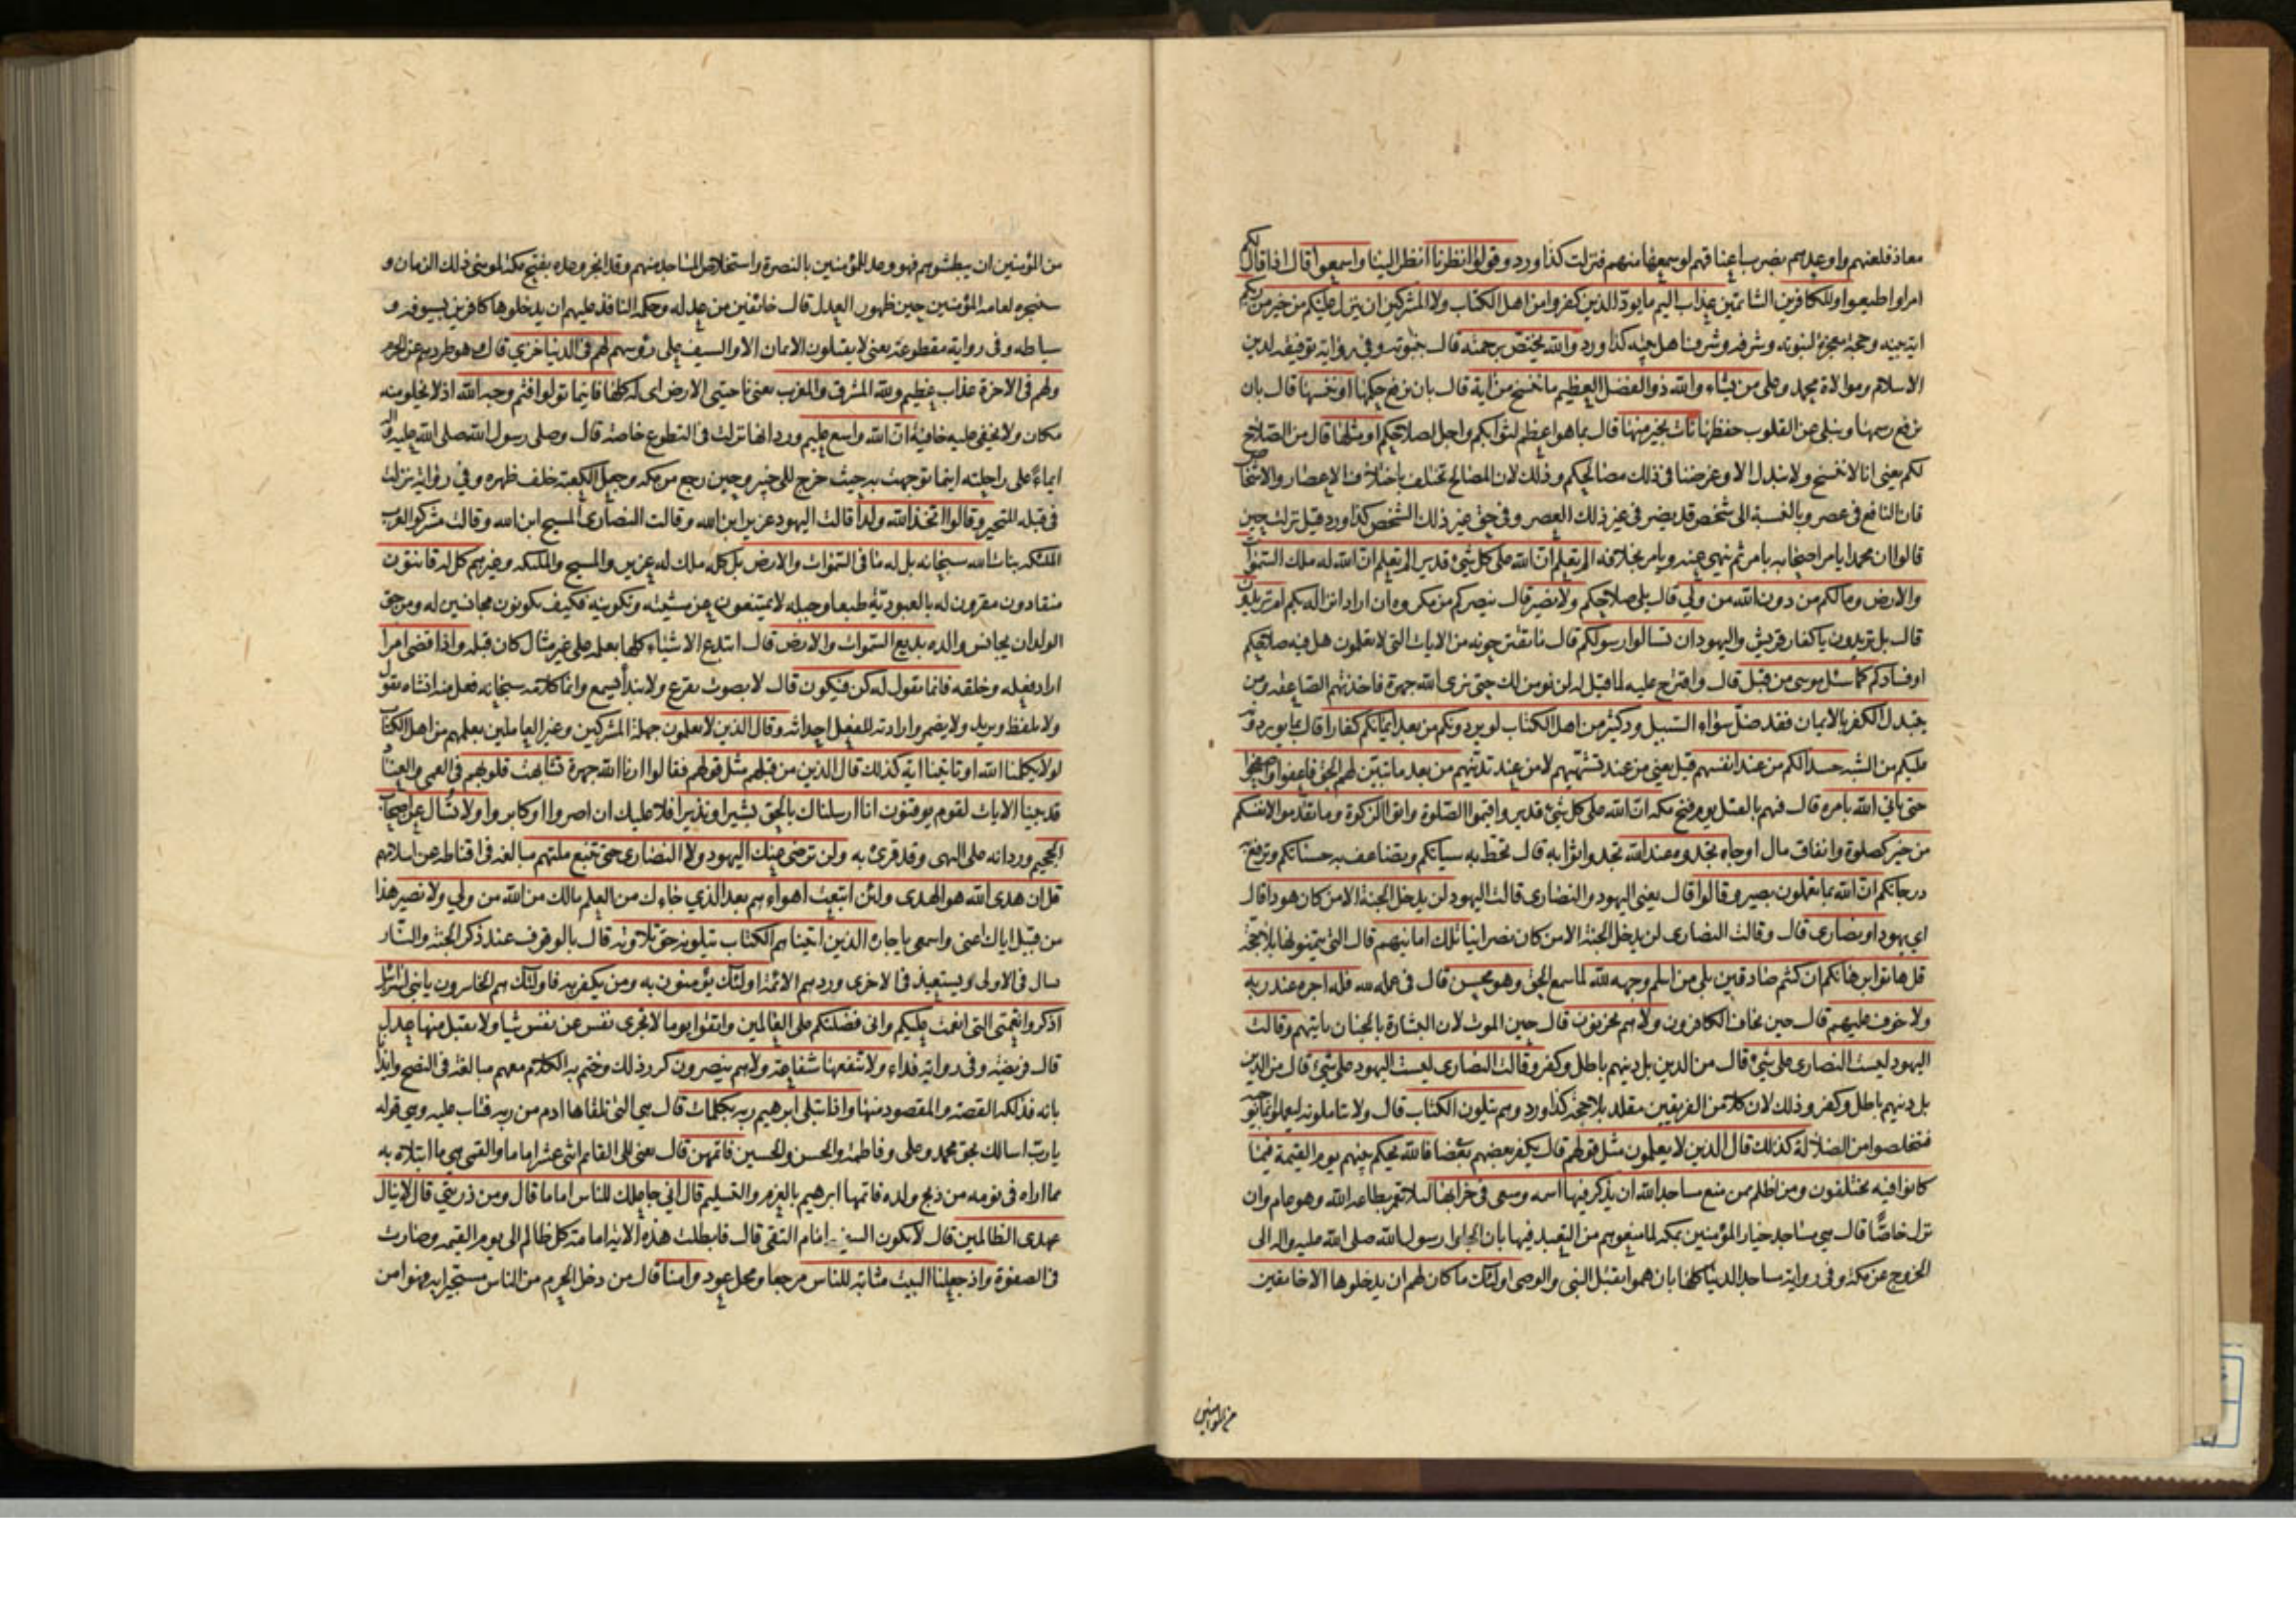 معاذ فلعنهم واوعدهم بضرب اعناقهم لو سمعها منهم فنزلت كذا ورد وقولوا انظرنا انظر الينا واسمعوا قال اذا قال لكم
امرا واطيعوا وللكافرين الشاتمين عذاب اليم ما يود الذين كفروا من اهل الكتاب ولا المشركين ان ينزل عليكم من خير من ربكم
اية بينة وحجة معجزة لنبوته وشرفه وشرف اهل بيته كذا ورد والله يختص برحمته قال بنبوته وفي رواية توفيقه لدين
الاسلام وموالاة محمد وعلي من يشاء والله ذو الفضل العظيم ما ننسخ من اية قال بان نرفع حكمها او ننسها قال بان
نرفع رسمها ونبلي عن القلوب حفظها نات بخير منها قال بما هو اعظم لثوابكم واجل لصلاحكم او مثلها قال من الصلاح
لكم يعني انا لا ننسخ ولا نبدل الا وغرضنا في ذلك مصالحكم وذلك لان المصالح تختلف باختلاف الاعصار والاشخاص
فان النافع في عصر وبالنسبة الى شخص قد يضر في غير ذلك العصر وفي حق غير ذلك الشخص كذا ورد قيل نزلت حين
قالوا ان محمدا يامر اصحابه بامر ثم ينهى عنه ويامر بخلافه الم تعلم ان الله على كل شيء قدير الم تعلم ان الله له ملك السموات
والارض وما لكم من دون الله من ولي قال يلي صلاحكم ولا نصير قال ينصركم من مكروه ان اراد انزاله بكم ام تريدون
قال بل تريدون يا كفار قريش واليهود ان تسالوا رسولكم قال ما تقترحونه من الايات التي لا تعلمون هل فيه صلاحكم
او فسادكم كما سئل موسى من قبل قال واقترح عليه لما قيل له لن نؤمن لك حتى نرى الله جهرة فاخذتهم الصاعقة ومن
يتبدل الكفر بالايمان فقد ضل سواء السبيل ود كثير من اهل الكتاب لو يردونكم من بعد ايمانكم كفارا قال بما يوردونه
عليكم من الشبه حسدا لكم من عند انفسهم قيل يعني من عند تشهيهم لا من عند تدينهم من بعد ما تبين لهم الحق فاعفوا واصفحوا
حتى ياتي الله بامره قال فيهم بالقتل يوم فتح مكة ان الله على كل شيء قدير واقيموا الصلوة واتوا الزكوة وما تقدموا لانفسكم
من خير كصلوة وانفاق مال او جاه تجدوه عند الله تجدوا ثوابه قال تحط به سياتكم ويضاعف به حسناتكم وترفع به
درجاتكم ان الله بما تعملون بصير وقالوا قال يعني اليهود والنصارى قالت اليهود لن يدخل الجنة الا من كان هودا قال
اي يهود او نصارى قال وقالت النصارى لن يدخل الجنة الا من كان نصرانيا تلك امانيهم قال التي يتمنونها بلا حجة
قل هاتوا برهانكم ان كنتم صادقين بلى من اسلم وجهه لله لما سمع الحق وهو محسن قال في عمله لله فله اجره عند ربه
ولا خوف عليهم قال حين يخاف الكافرون ولا هم يحزنون قال حين الموت لان البشارة بالجنان ياتيهم وقالت
اليهود ليست النصارى على شيء قال من الدين بل دينهم باطل وكفر وقالت النصارى ليست اليهود على شيء قال من الدين
بل دينهم باطل وكفر وذلك لان كلا من الفريقين مقلد بلا حجة كذا ورد وهم يتلون الكتاب قال ولا يتاملونه ليعملوا بما يوجبه
فتخلصوا من الضلالة كذلك قال الذين لا يعلمون مثل قولهم قال يكفر بعضهم بعضا فالله يحكم بينهم يوم القيمة فيما
كانوا فيه يختلفون ومن اظلم ممن منع مساجد الله ان يذكر فيها اسمه وسعى في خرابها لئلا تعمر بطاعة الله وهو عام وان
نزل خاصا قال هي مساجد خيار المؤمنين بمكة لما منعوهم من التعبد فيها بان الجاوا رسول الله صلى الله عليه واله الى
الخروج عن مكة وفي رواية مساجد الدنيا كلها بان هموا بقتل النبي والوصي اولئك ما كان لهم ان يدخلوها الا خائفين
من المؤمنين
من المؤمنين ان يبطشوهم فهو وعد للمؤمنين بالنصرة واستخلاص المساجد منهم وقد انجز وعده بفتح مكة لمؤمني ذلك الزمان و
سينجزه لعامة المؤمنين حين ظهور العدل قال خائفين من عدله وحكمه النافذ عليهم ان يدخلوها كافرين بسيوفه و
سياطه وفي رواية مقطوعة يعني لا يقبلون الايمان الا والسيف على رؤسهم لهم في الدنيا خزي قال هو طردهم عن الحرم
ولهم في الاخرة عذاب عظيم ولله المشرق والمغرب يعني ناحيتي الارض اي له كلها فاينما تولوا فثم وجه الله اذ لا يخلو منه
مكان ولا يخفى عليه خافية ان الله واسع عليم ورد انها نزلت في التطوع خاصة قال وصلى رسول الله صلى الله عليه واله
ايماء على راحلته اينما توجهت به حيث خرج الى خيبر وحين رجع من مكة وجعل الكعبة خلف ظهره وفي رواية نزلت
في قبلة المتحير وقالوا اتخذ الله ولدا قالت اليهود عزير ابن الله وقالت النصارى المسيح ابن الله وقالت مشركوا العرب
الملئكة بنات الله سبحانه بل له ما في السموات والارض بل كله ملك له عزير والمسيح والملئكة وغيرهم كل له قانتون
منقادون مقرون له بالعبودية طبعا وجبلة لا يمتنعون عن مشيته وتكوينه فكيف يكونون مجانسين له ومن حق
الولد ان يجانس والده بديع السموات والارض قال ابتدع الاشياء كلها بعلمه على غير مثال كان قبله واذا قضى امرا
اراد فعله وخلقه فانما يقول له كن فيكون قال لا بصوت يقرع ولا بنداء يسمع وانما كلامه سبحانه فعل منه انشاه يقول
ولا يلفظ ويريد ولا يضمر وارادته للفعل احداثه وقال الذين لا يعلمون جهلة المشركين وغير العاملين بعلمهم من اهل الكتاب
لولا يكلمنا الله او تاتينا اية كذلك قال الذين من قبلهم مثل قولهم فقالوا ارنا الله جهرة تشابهت قلوبهم في العمى والعناد
قد بينا الايات لقوم يوقنون انا ارسلناك بالحق بشيرا ونذيرا فلا عليك ان اصروا او كابروا ولا تسال عن اصحاب
الجحيم ورد انه على النهي وقد قرئ به ولن ترضى عنك اليهود ولا النصارى حتى تتبع ملتهم مبالغة في اقناطه عن اسلامهم
قل ان هدى الله هو الهدى ولئن اتبعت اهواءهم بعد الذي جاءك من العلم مالك من الله من ولي ولا نصير هذا
من قبيل اياك اعني واسمعي يا جارة الذين اتيناهم الكتاب يتلونه حق تلاوته قال بالوقوف عند ذكر الجنة والنار
يسال في الاولى ويستعيذ في الاخرى ورد هم الائمة اولئك يؤمنون به ومن يكفر به فاولئك هم الخاسرون يا بني اسرائيل
اذكروا نعمتي التي انعمت عليكم واني فضلتكم على العالمين واتقوا يوما لا تجزي نفس عن نفس شيا ولا يقبل منها عدل
قال فريضة وفي رواية فداء ولا تنفعها شفاعة ولا هم ينصرون كرر ذلك وختم به الكلام معهم مبالغة في النصح وايذانا
بانه فذلكة القصة والمقصود منها واذ ابتلى ابرهيم ربه بكلمات قال هي التي تلقاها ادم من ربه فتاب عليه وهي قوله
يا رب اسالك بحق محمد وعلي وفاطمة والحسن والحسين فاتمهن قال يعني الى القائم اثنى عشر اماما والقمي هي ما ابتلاه به
مما اراه في نومه من ذبح ولده فاتمها ابرهيم بالعزم والتسليم قال اني جاعلك للناس اماما قال ومن ذريتي قال لا ينال
عهدي الظالمين قال لا يكون السفيه امام التقي قال فابطلت هذه الاية امامة كل ظالم الى يوم القيمة وصارت
في الصفوة واذ جعلنا البيت مثابة للناس مرجعا ومحل عود وامنا قال من دخل الحرم من الناس مستجيرا به فهو امن